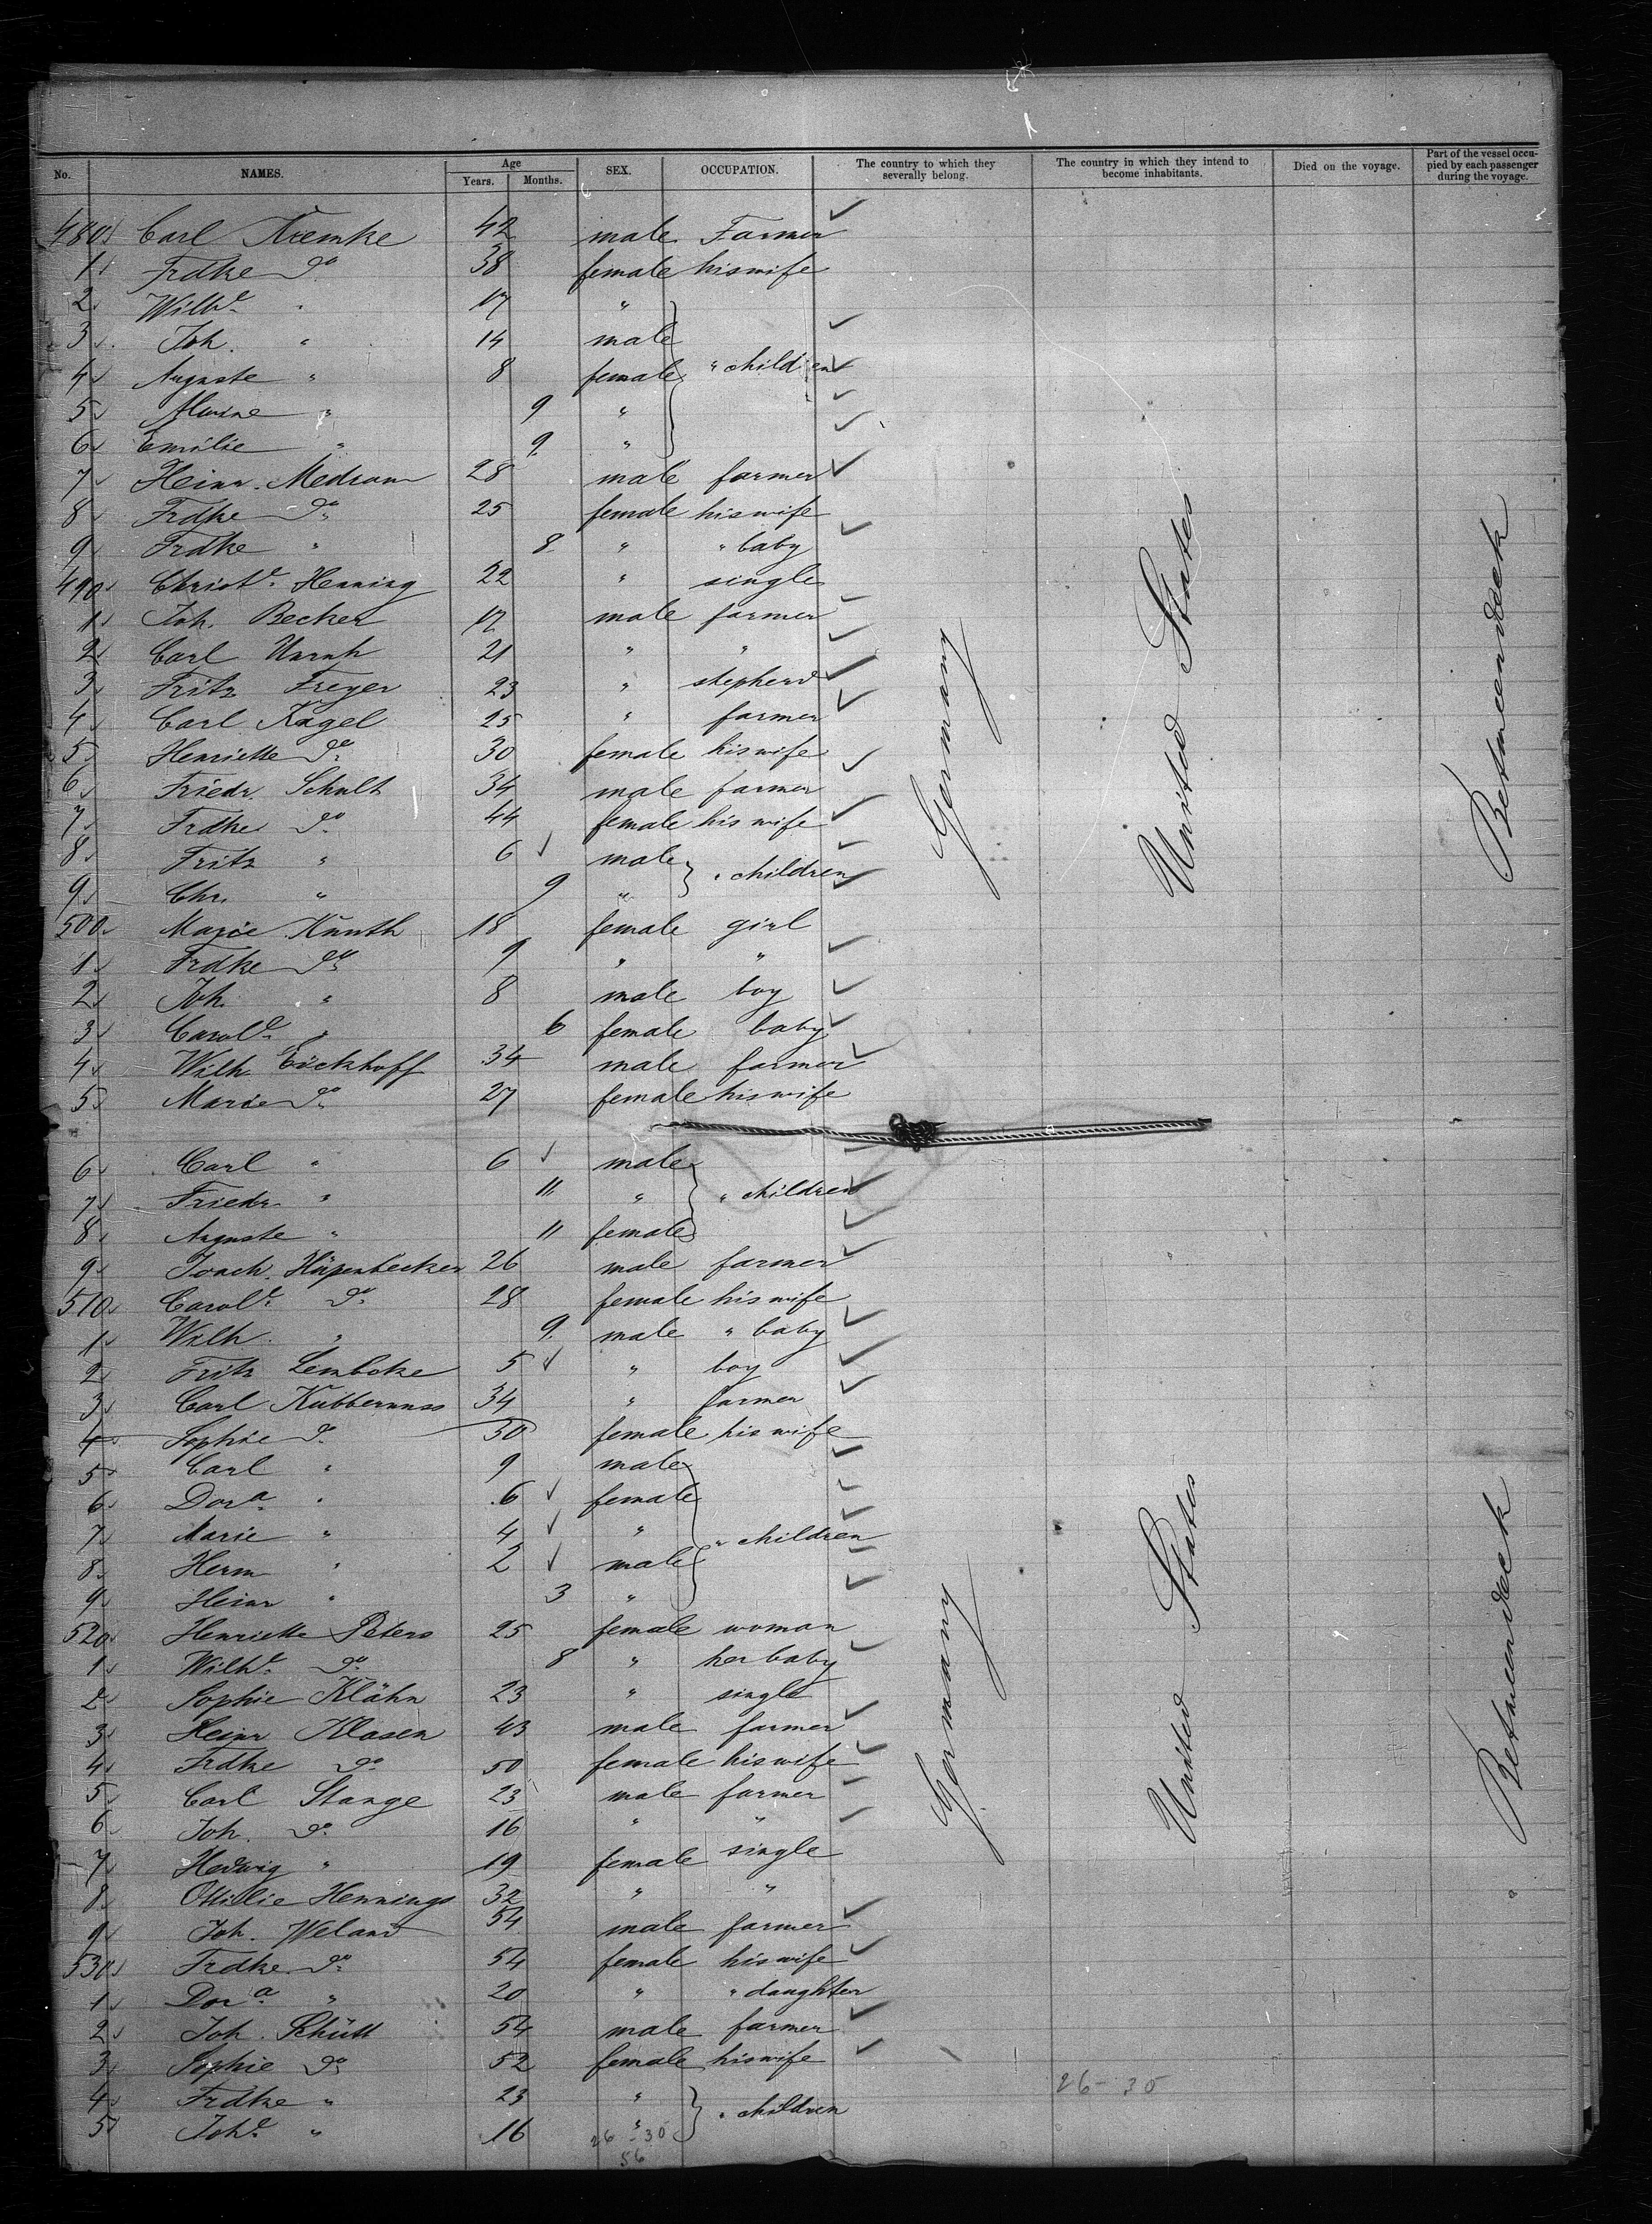 No. NAMES. Age Years. Months. SEX. OCCUPATION. The country to which they severally belong. The country in which they intend to become inhabitants. Died on the voyage. Part of the vessel occupied by each passenger during the voyage.
480 Carl Kremke 42 male Farmer
1 Frdke do 38 female his wife
2 Wilhe " 17 "
3 Joh. " 14 male
4 Auguste " 8 female " children
5 Alwine " 9 "
6 Emilie " 9 "
7 Heinr. Medrow 28 male farmer
8 Frdke do 25 female his wife
9 Frdke " 8 " " baby
490 Christe Henning 22 " single
1 Joh. Becker 17 male farmer
2 Carl 21 " "
3 Fritz Freyer 23 " shepherd
4 Carl Kagel 25 " farmer
5 Henriette do 30 female his wife
6 Friedr. Schult 34 male farmer
7 Frdke do 44 female his wife
8 Fritz " 6 male " children
9 Chr. " 9 "
500 Marie Knuth 18 female girl
1 Frdke do 9 " "
2 Joh. " 8 male boy
3 Carole " 6 female baby
4 Wilh. Eickhoff 34 male farmer
5 Marie do 27 female his wife
6 Carl " 6 male
7 Friedr. " 11 " " children
8 Auguste " 11 female
9 Joach. 26 male farmer
510 Carole do 28 female his wife
1 Wilh. " 9 male " baby
2 Fritz Lembcke 5 " boy
3 Carl Kubbernuss 34 " farmer
4 Sophie do 30 female his wife
5 Carl " 9 male
6 Dora " 6 female
7 Marie " 4 " " children
8 Herm " 2 male
9 Heinr " 3 "
520 Henriette Peters 25 female woman
1 Wilhe do 8 " her baby
2 Sophie Klähn 23 " single
3 Heinr Klasen 43 male farmer
4 Frdke do 50 female his wife
5 Carl Stange 23 male farmer
6 Joh. do 16 " "
7 Hedwig " 19 female single
8 Ottilie Hennings 32 " "
9 Joh. Weland 54 male farmer
530 Frdke do 54 female his wife
1 Dora " 20 " " daughter
2 Joh. Schütt 54 male farmer
3 Sophie do 52 female his wife
4 Frdke " 23 " " children
5 Johe " 16 "
26-30
56
Germany
United States
Betweendeck
Germany
United States
Betweendeck
26-30